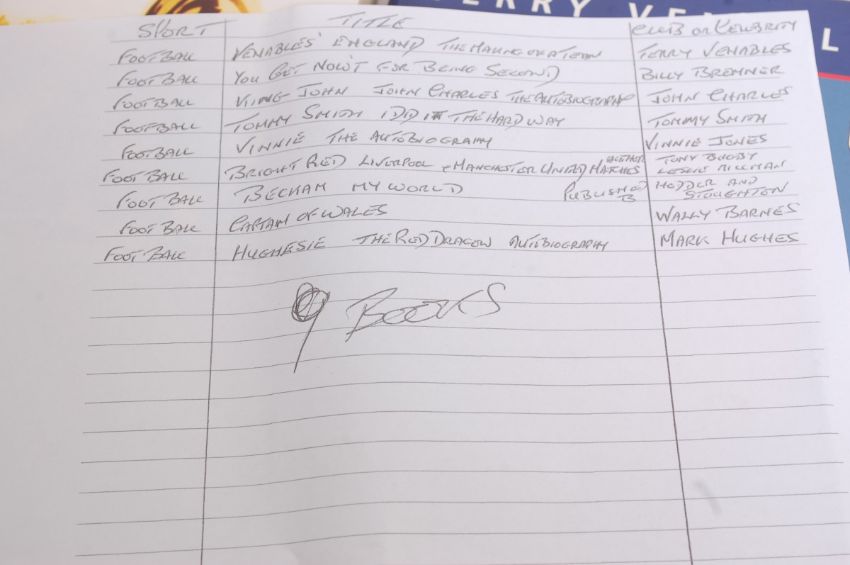 ERRY VEN L
SPORT TITLE CLUB OR CELEBRITY
FOOTBALL VENABLES' ENGLAND THE MAKING OF A TEAM TERRY VENABLES
FOOTBALL YOU GET NOWT FOR BEING SECOND BILLY BREMNER
FOOTBALL KING JOHN JOHN CHARLES THE AUTOBIOGRAPHY JOHN CHARLES
FOOTBALL TOMMY SMITH I DID IT THE HARD WAY TOMMY SMITH
FOOTBALL VINNIE THE AUTOBIOGRAPHY VINNIE JONES
FOOTBALL BRIGHT RED LIVERPOOL & MANCHESTER UNITED MATCHES TONY
FOOTBALL BECHAM MY WORLD PUBLISHED B HODDER AND STOUGHTON
FOOTBALL CAPTAIN OF WALES WALLY BARNES
FOOTBALL HUGHESIE THE RED DRAGON AUTOBIOGRAPHY MARK HUGHES
9 BOOKS